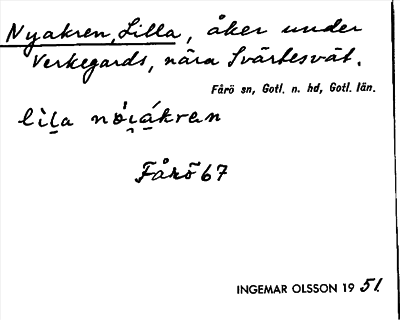 Nyakren, Lilla, åker under
Verkegards, nära Svärtesvät.
Fårö sn, Gotl. n. hd, Gotl. län.
lila
Fårö 67
INGEMAR OLSSON 19 51.